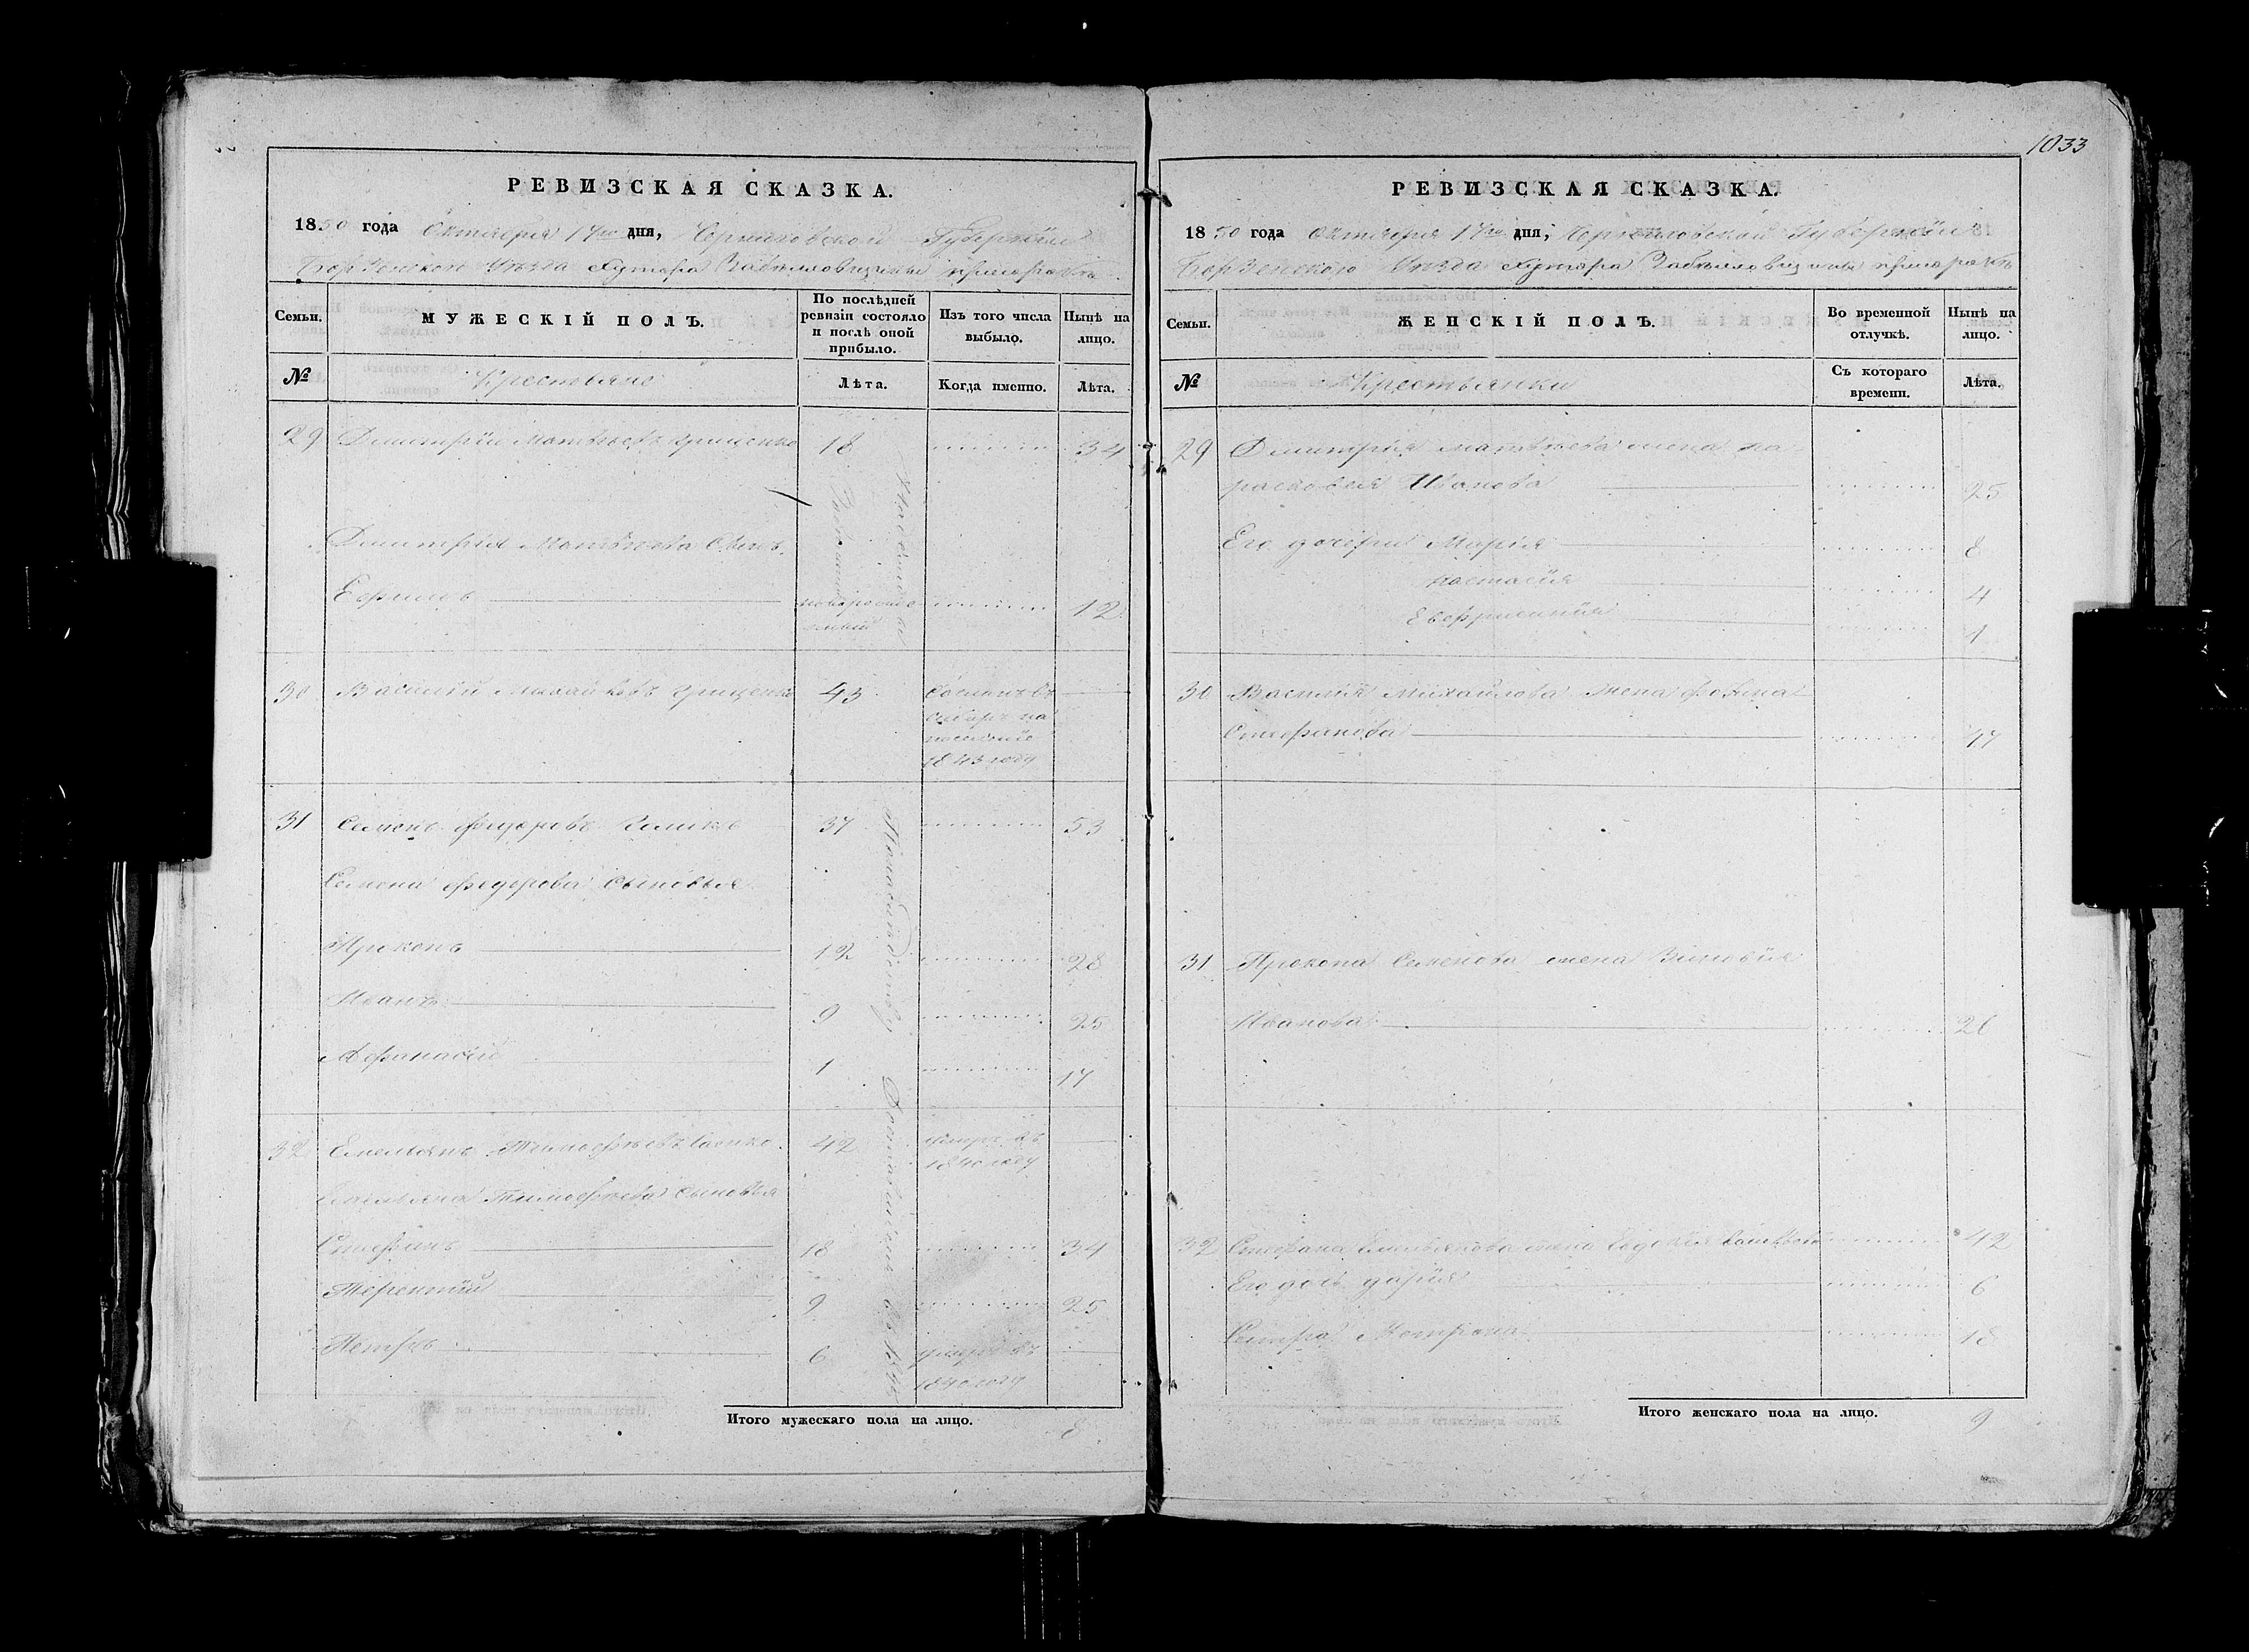 1033
РЕВИЗСКАЯ СКАЗКА.
1850 года Октября 17го дня, Черниговской Губернiи
Борзенского Уѣзда Хутора
Семьи.
МУЖЕСКIЙ ПОЛЪ.
По послѣдней ревизiи состояло и послѣ оной прибыло.
Изъ того числа выбыло.
Нынѣ на лицо.
№
Крестьяне
Лѣта.
Когда именно.
Лѣта.
29 Дмитрiй Матвѣевъ Грищенко 18 34
Дмитрiя Матвѣева Сынъ
Ефимъ 12
30 Василiй Михайловъ Грищенко 43 Сосланъ въ
сибирь на
поселенiе
1843 году
31 Семенъ Федоровъ 37 53
Семена Федорова Сыновья
Прокопъ 12 28
Иванъ 9 25
Афанасiй 1 17
32 Емельянъ Тимофѣевъ 42 умеръ въ
1840 году
Емельяна Тимофѣева Сыновья
Стефанъ 18 34
Терентiй 9 25
Петръ 6 умеръ въ
1840 году
Итого мужескаго пола на лицо. 8
РЕВИЗСКАЯ СКАЗКА.
1850 года Октября 17го дня, Черниговской Губернiи
Борзенского Уѣзда Хутора
Семьи.
ЖЕНСКIЙ ПОЛЪ.
Во временной отлучкѣ.
Нынѣ на лицо.
№
Крестьянки
Съ котораго времени.
Лѣта.
29 Дмитрiя Матвѣева жена Па-
расковiя Иванова 25
Его дочери Марiя 8
Настасiя 4
Евфросинiя 1
30 Василiя Михайлова Жена
Стефанова 47
31 Прокопа Семенова жена Зиновiя
Иванова 26
32 Стефана Емельянова жена 42
Его дочь Дарiя 6
Сестра Матрона 18
Итого женскаго пола на лицо. 9